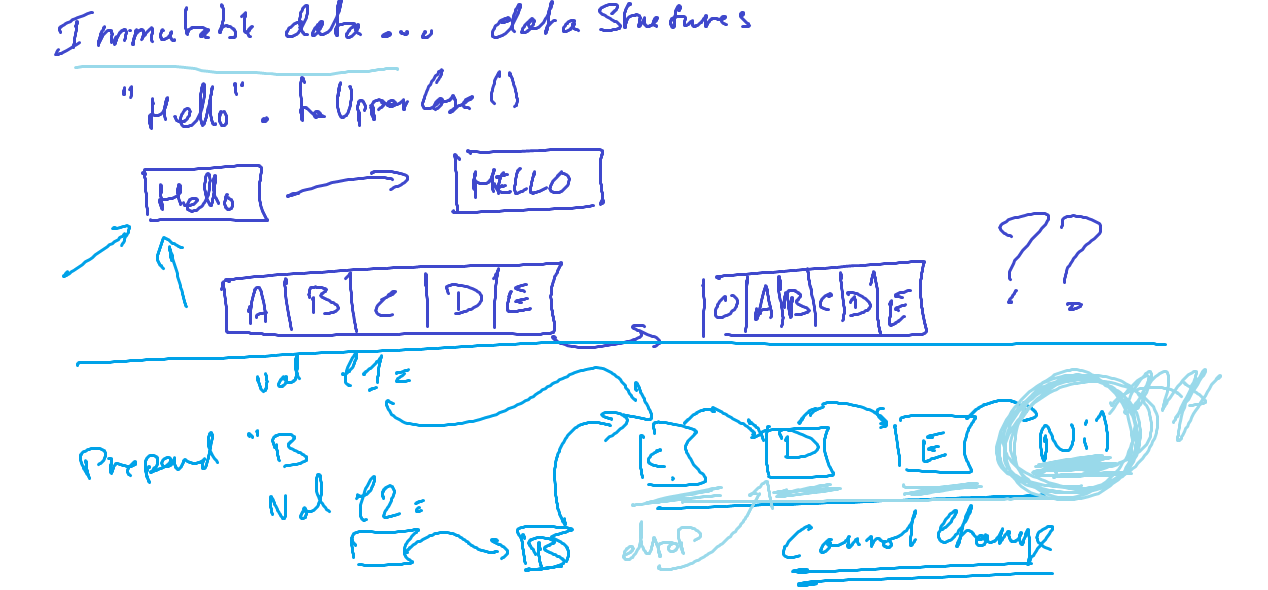 Immutable data... data Structures
"Hello". toUpperCase()
Hello HELLO
A B C D E O A B C D E ??
val l1 =
C D E Nil
Prepend "B
Val l2 =
B drop Cannot Change